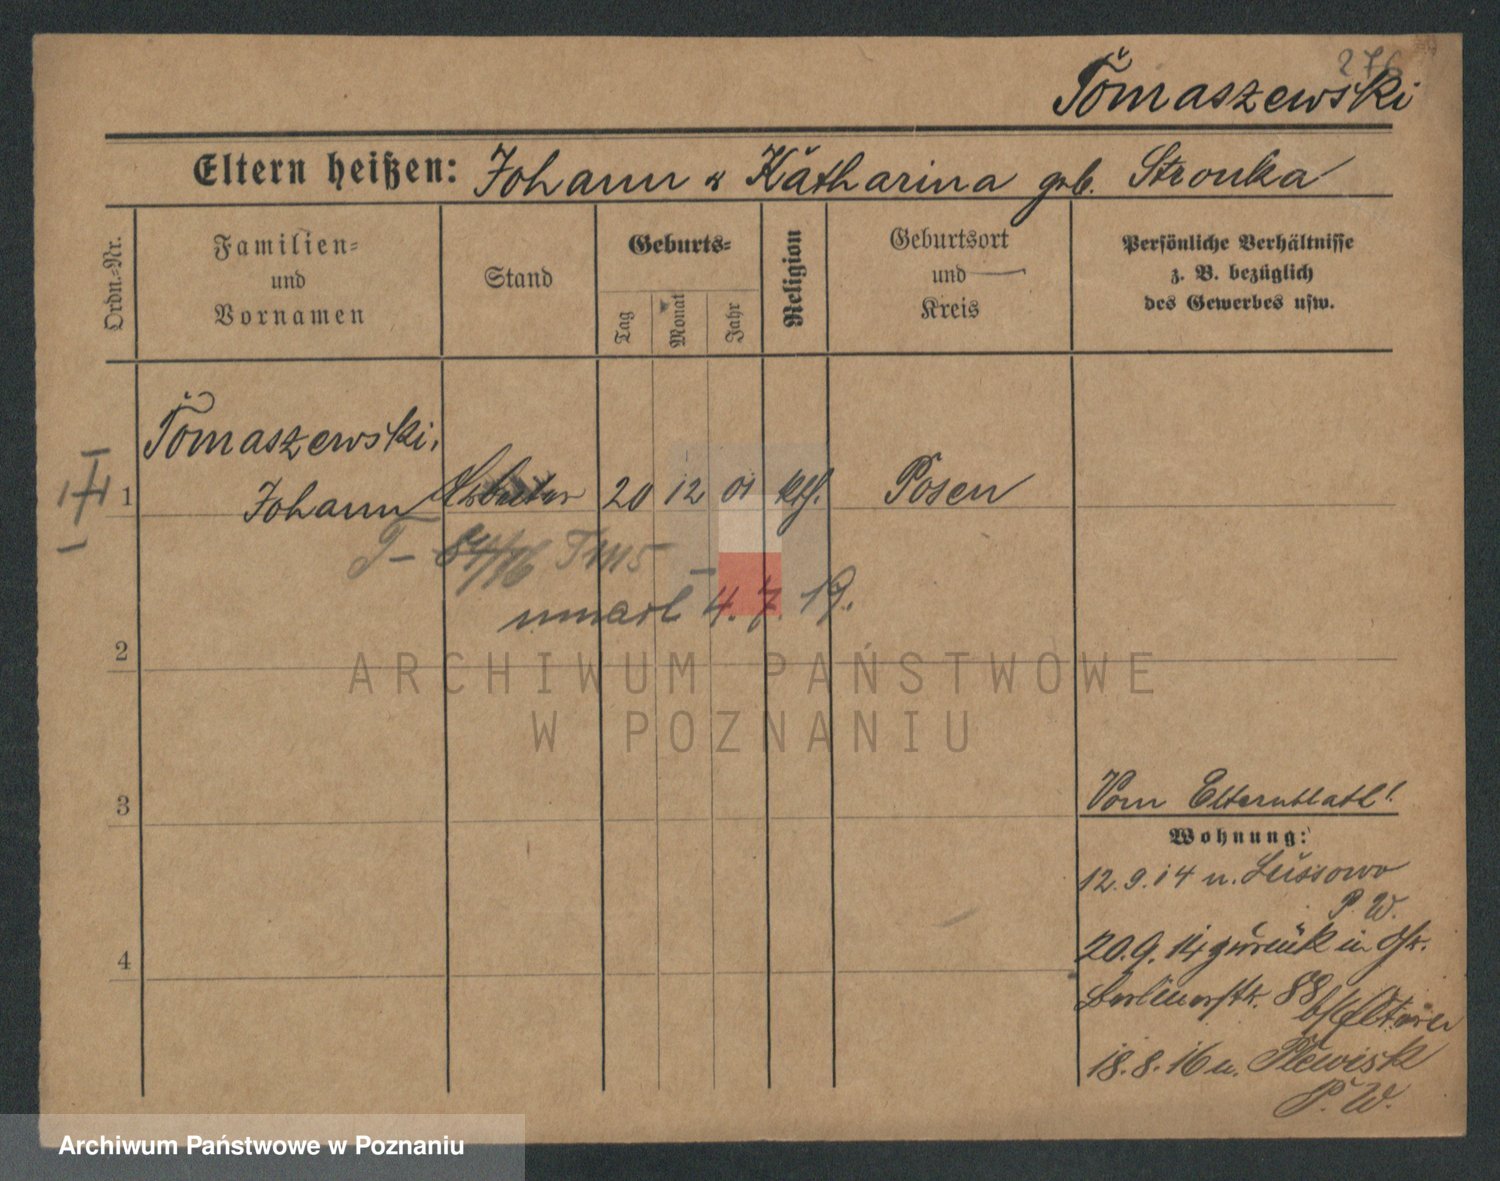 276
Tomaszewski
Eltern heißen: Johann u Katharina geb. Stronka
Ordn.-Nr.
Familien-
und
Vornamen
Stand
Geburts-
Tag
Monat
Jahr
Religion
Geburtsort
und
Kreis
Persönliche Verhältnisse
z. B. bezüglich
des Gewerbes usw.
Tomaszewski,
1 Johann Arbeiter 20 12 01 kth. Posen
4. 7. 19.
2
ARCHIWUM PAŃSTWOWE
W POZNANIU
3
Vom Elternblatt!
Wohnung:
12.9.14 n. Lussowo
P. W.
20.9.14 zurück in
4
Berlinerstr. 88 b/Eltern
18.8.16 n. Plewisk
P. W.
Archiwum Państwowe w Poznaniu